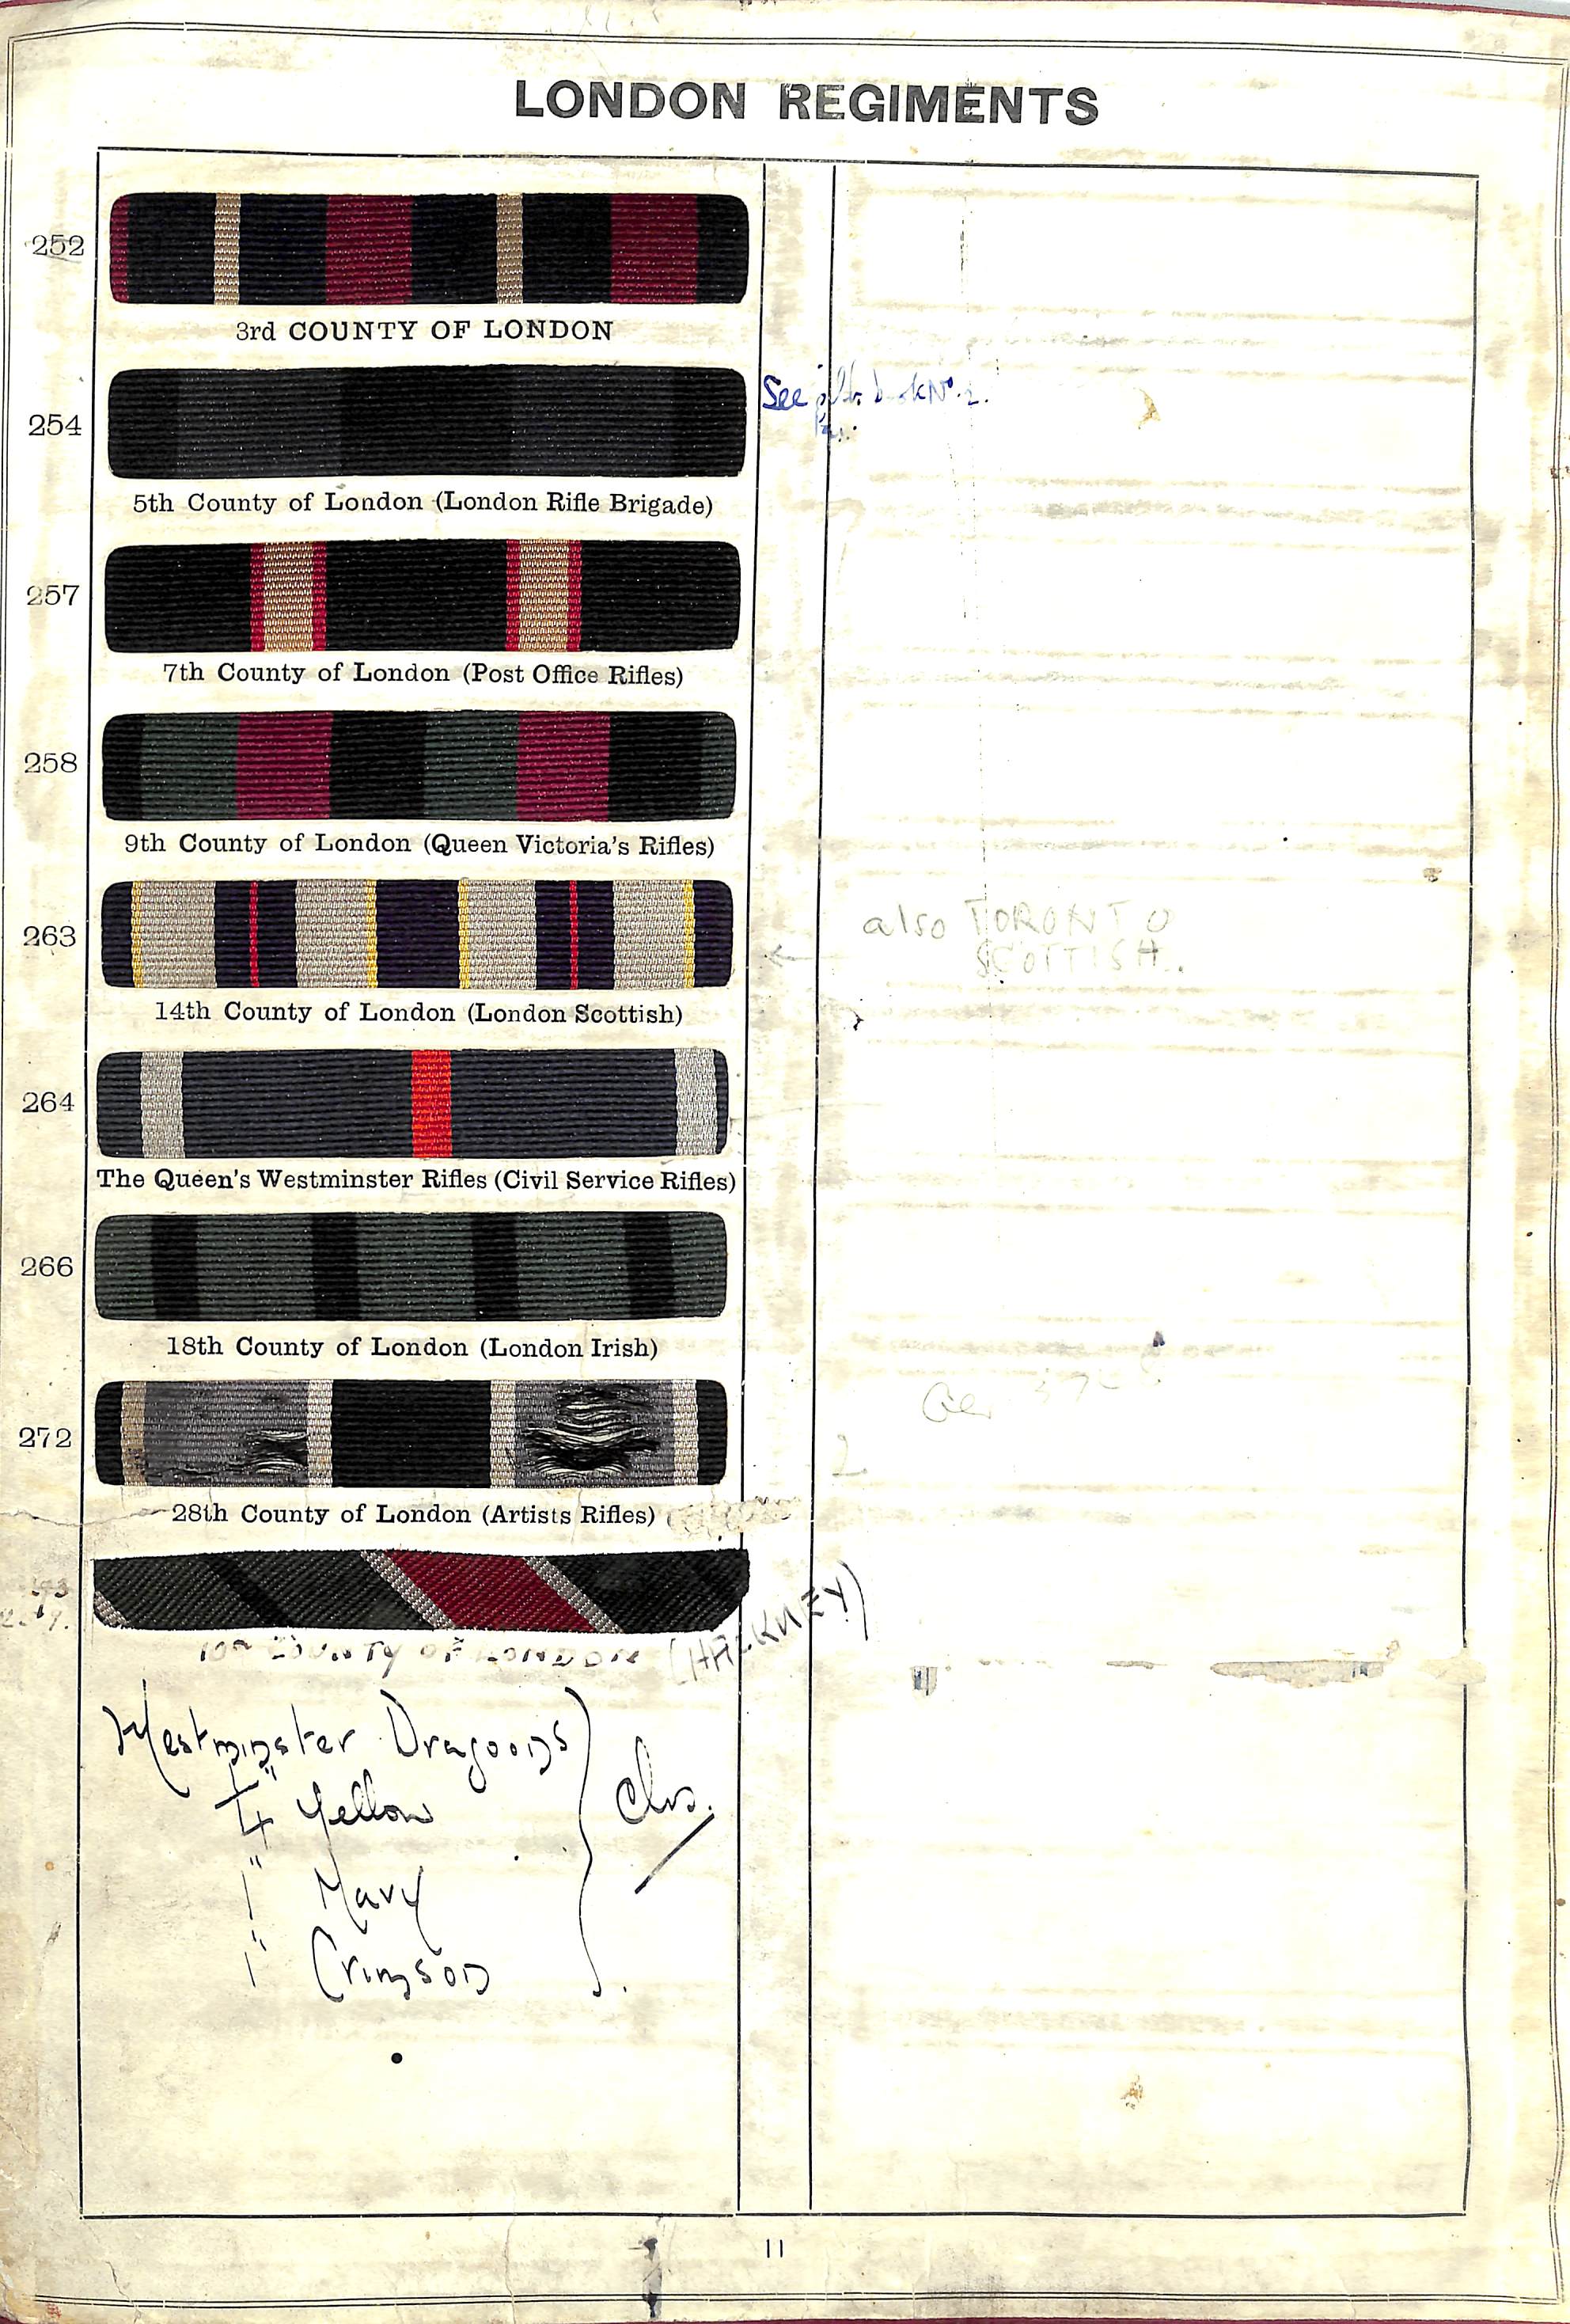 LONDON REGIMENTS
252
3rd COUNTY OF LONDON
254
See
5th County of London (London Rifle Brigade)
257
7th County of London (Post Office Rifles)
258
9th County of London (Queen Victoria's Rifles)
263
also TORONTO
SCOTTISH.
14th County of London (London Scottish)
264
The Queen's Westminster Rifles (Civil Service Rifles)
266
18th County of London (London Irish)
272
28th County of London (Artists Rifles)
10th COUNTY OF LONDON (HACKNEY)
Westminster Dragoons
1/4" Yellow
1" Navy
1" Crimson
11